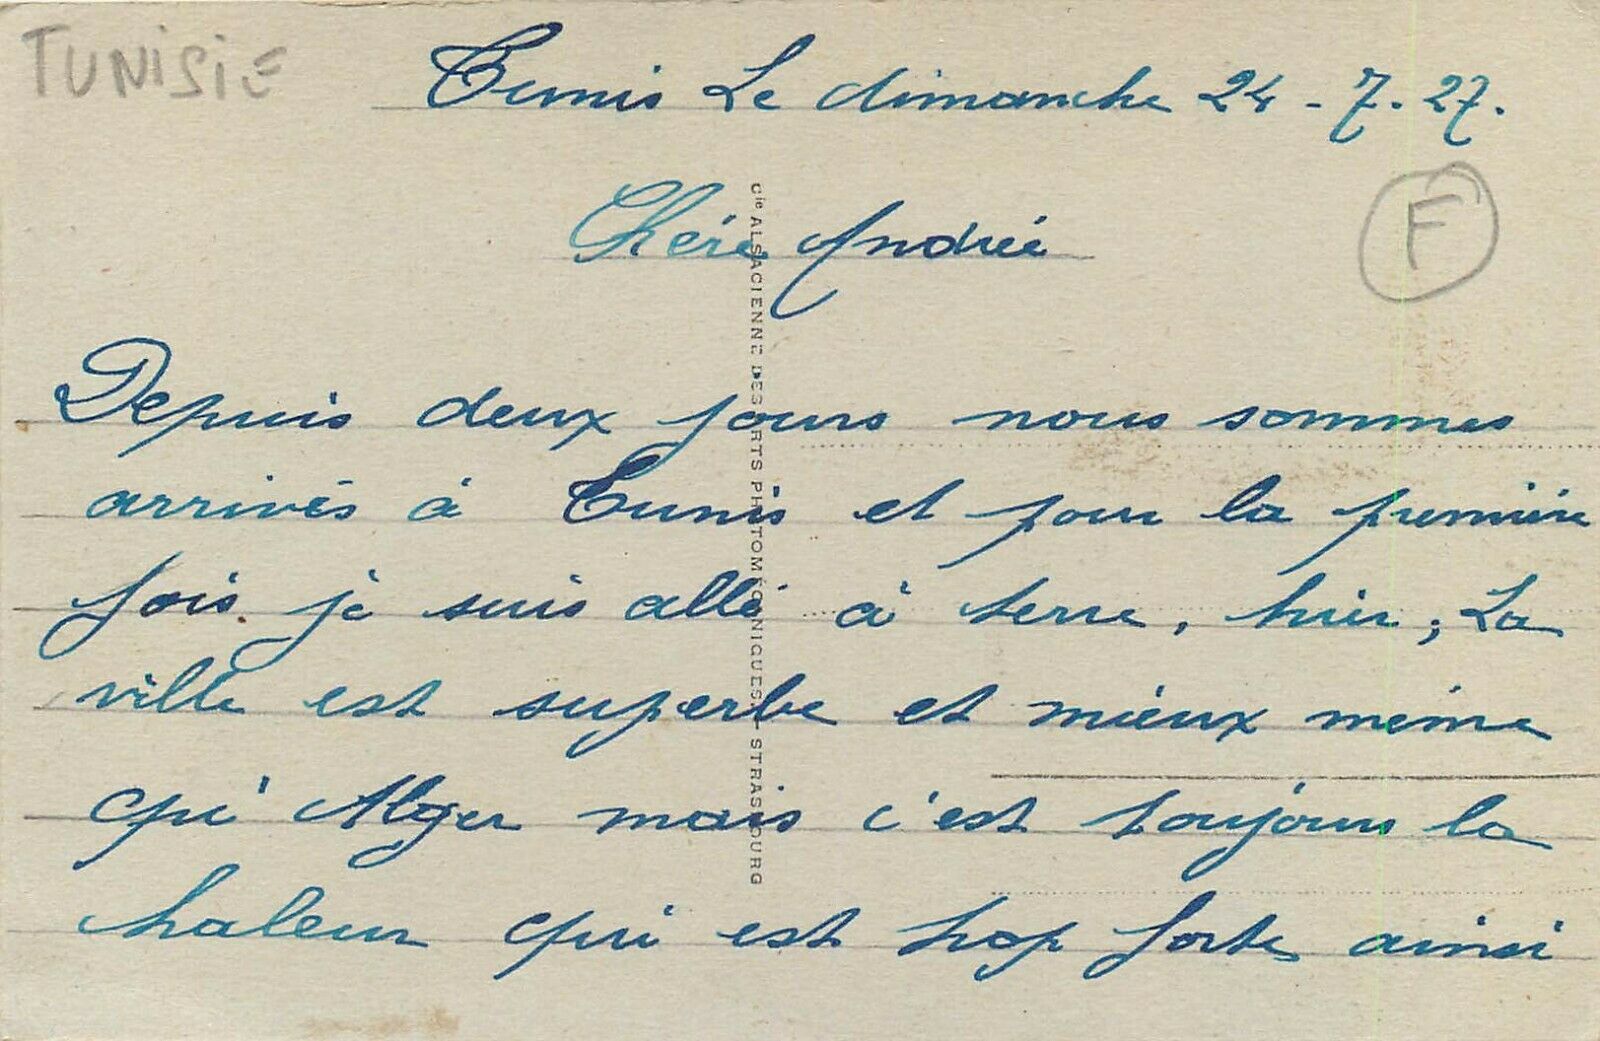 TUNISIE
Tunis Le dimanche 24-7.27.
F
Chère Andrée
Cie ALSACIENNE DES ARTS PHOTOMÉCANIQUES - STRASBOURG
Depuis deux jours nous sommes
arrivés à Tunis et pour la première
fois je suis allé à terre, hier, La
ville est superbe et mieux même
qu'Alger mais c'est toujours la
chaleur qui est trop forte ainsi